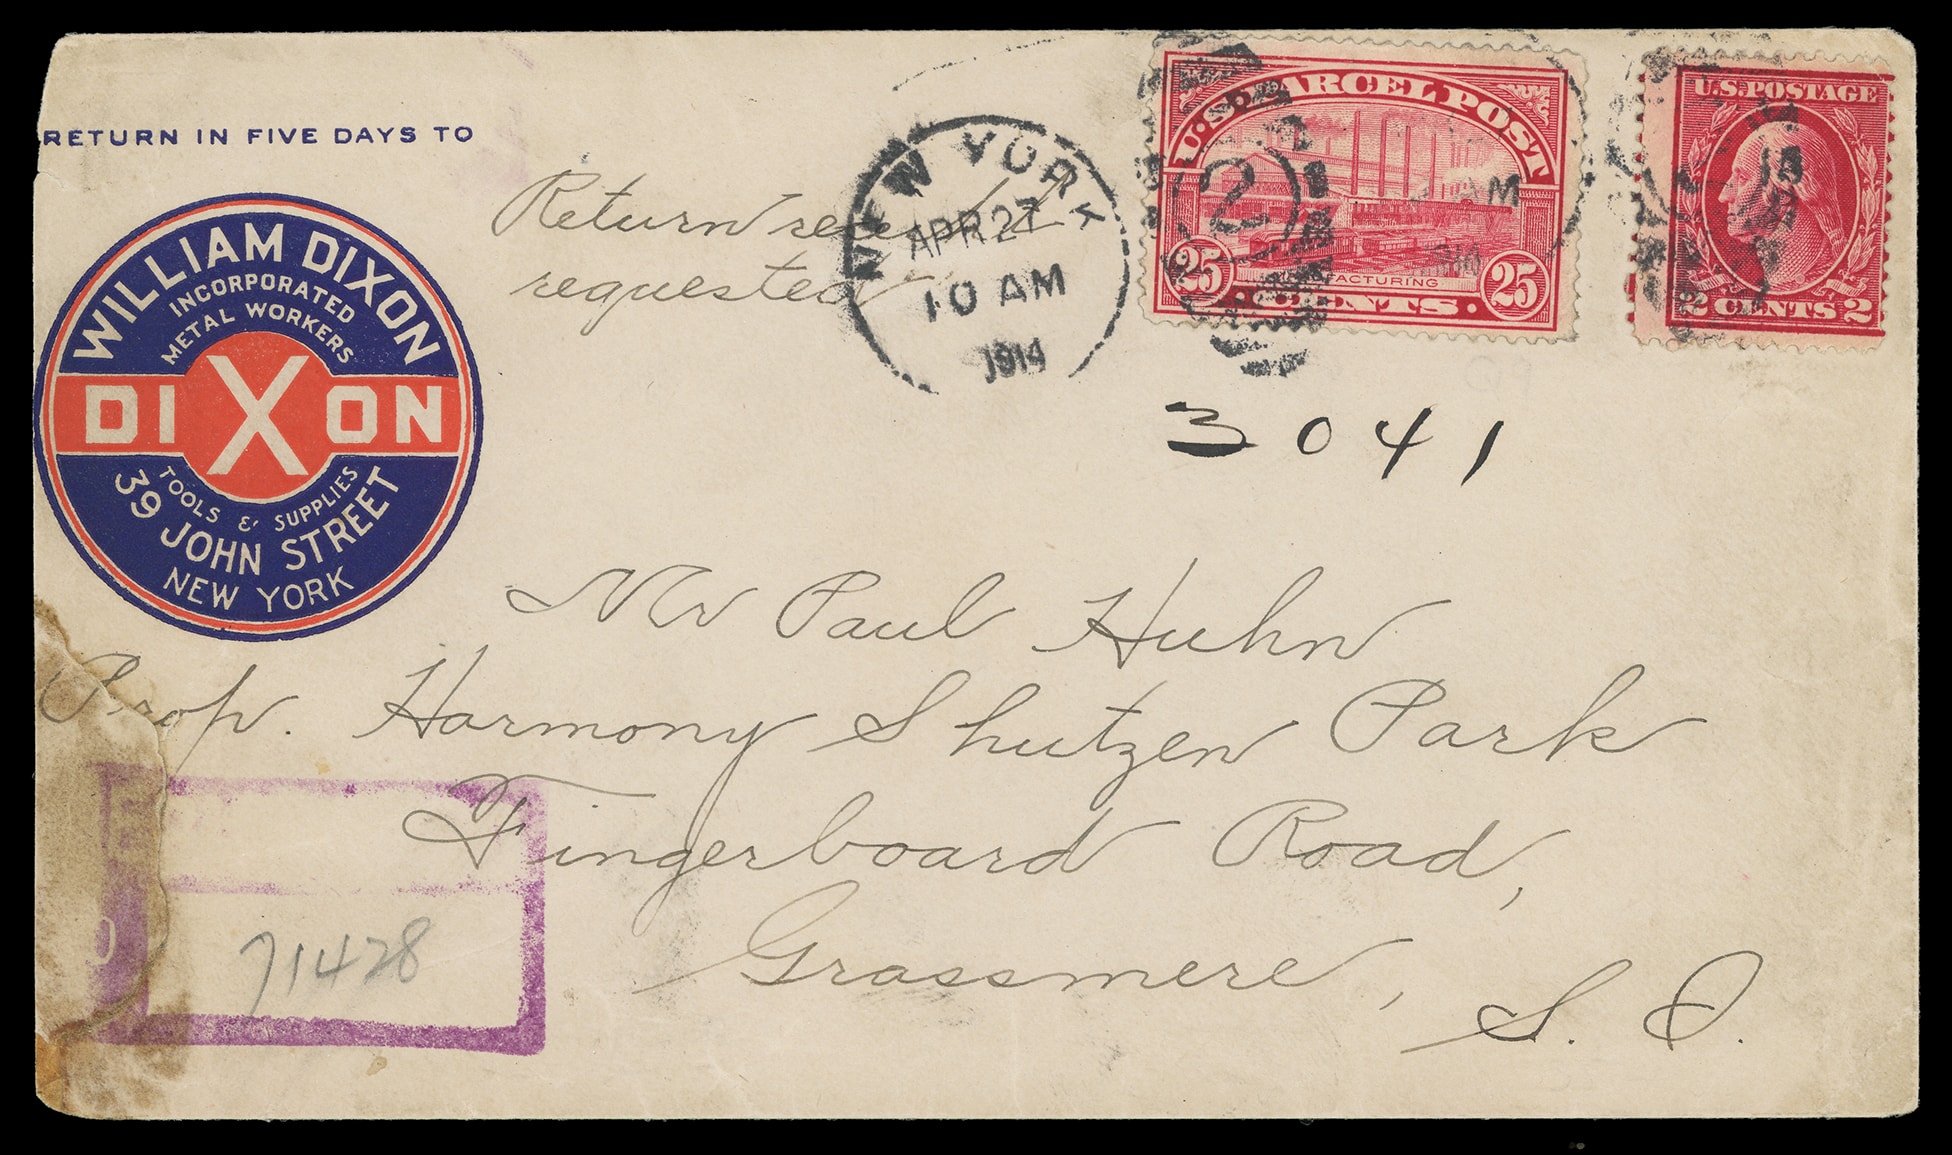 RETURN IN FIVE DAYS TO
WILLIAM DIXON
INCORPORATED
METAL WORKERS
DIXON
TOOLS & SUPPLIES
39 JOHN STREET
NEW YORK
Return
requested
NEW YORK
APR 27
10 AM
1914
U.S. PARCEL POST
2
AM
25 MANUFACTURING 25
CENTS
U.S. POSTAGE
2 CENTS 2
3041
Mr Paul Huhn
Prop. Harmony Shutzen Park
Fingerboard Road,
Grassmere, S. I.
71428